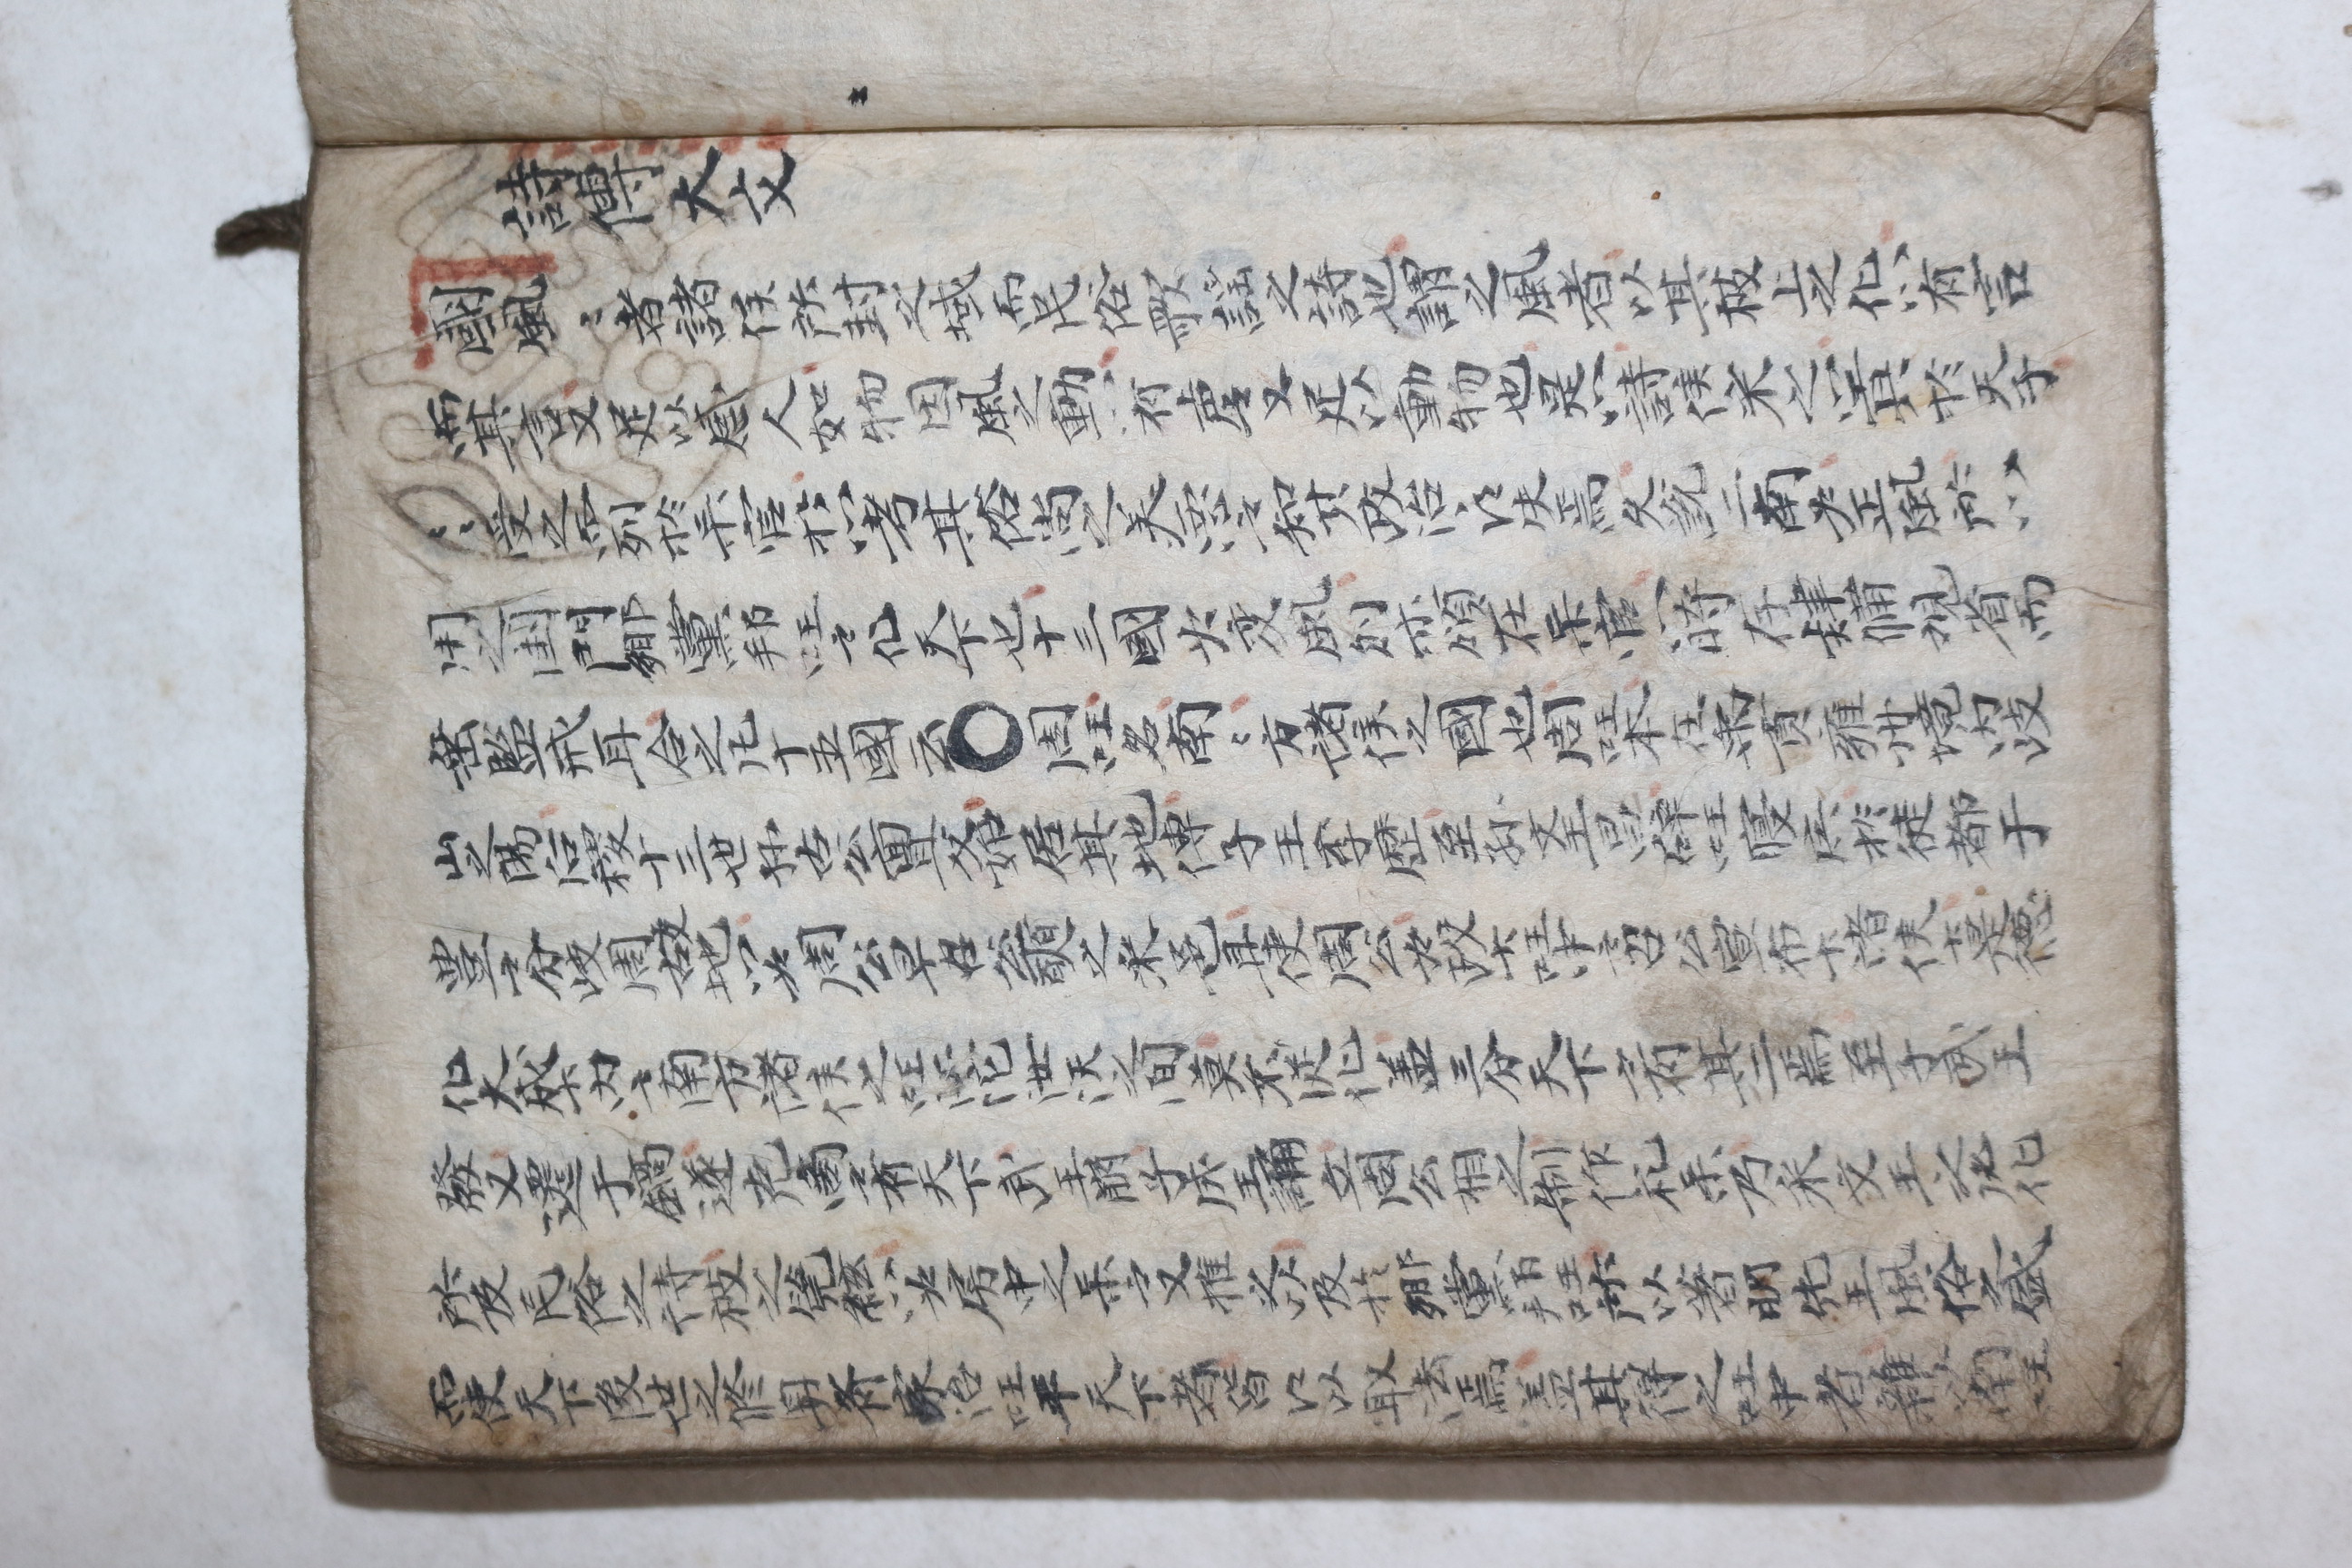 詩傳大文
國風〻者諸侯所封之域而民俗歌謠之詩也謂之風者以其被上之化以有言
而其言又足以感人如物因風之動以有聲又足以動物也是以諸侯采之以貢於天子
〻〻受之而列於樂官於以考其俗尚之美惡而知其政治以失焉旧說二南为正風所以
用之閨門鄕黨邦国而化天下也十三國为變風則亦領在樂官以時存肄備覌省而
垂監戒耳合之凡十五國云○周国名南〻方諸侯之國也周国本在禹貢雍州境内岐
山之陽后稷十三世孫古公亶父始居其地傳子王季歷至孫文王昌辟国寖廣於徙都于
豊而分岐周故地以为周公旦召公奭之采邑且使周公为政於国中而召公宣布於諸侯於是德
化大成於内而南方諸侯之国江沱汝漢之間莫不從化盖三分天下而有其二焉至子武王
發又遷于鎬遂克商而有天下武王崩子成王誦立周公相之制作礼樂乃采文王之世化
所及民俗之詩被之筦絃以为房中之樂而又推之以及於鄕黨邦国所以著明先王風俗之盛
而使天下後世之修身齊家治国平天下者皆以取法焉盖其得之国中者雜以南国